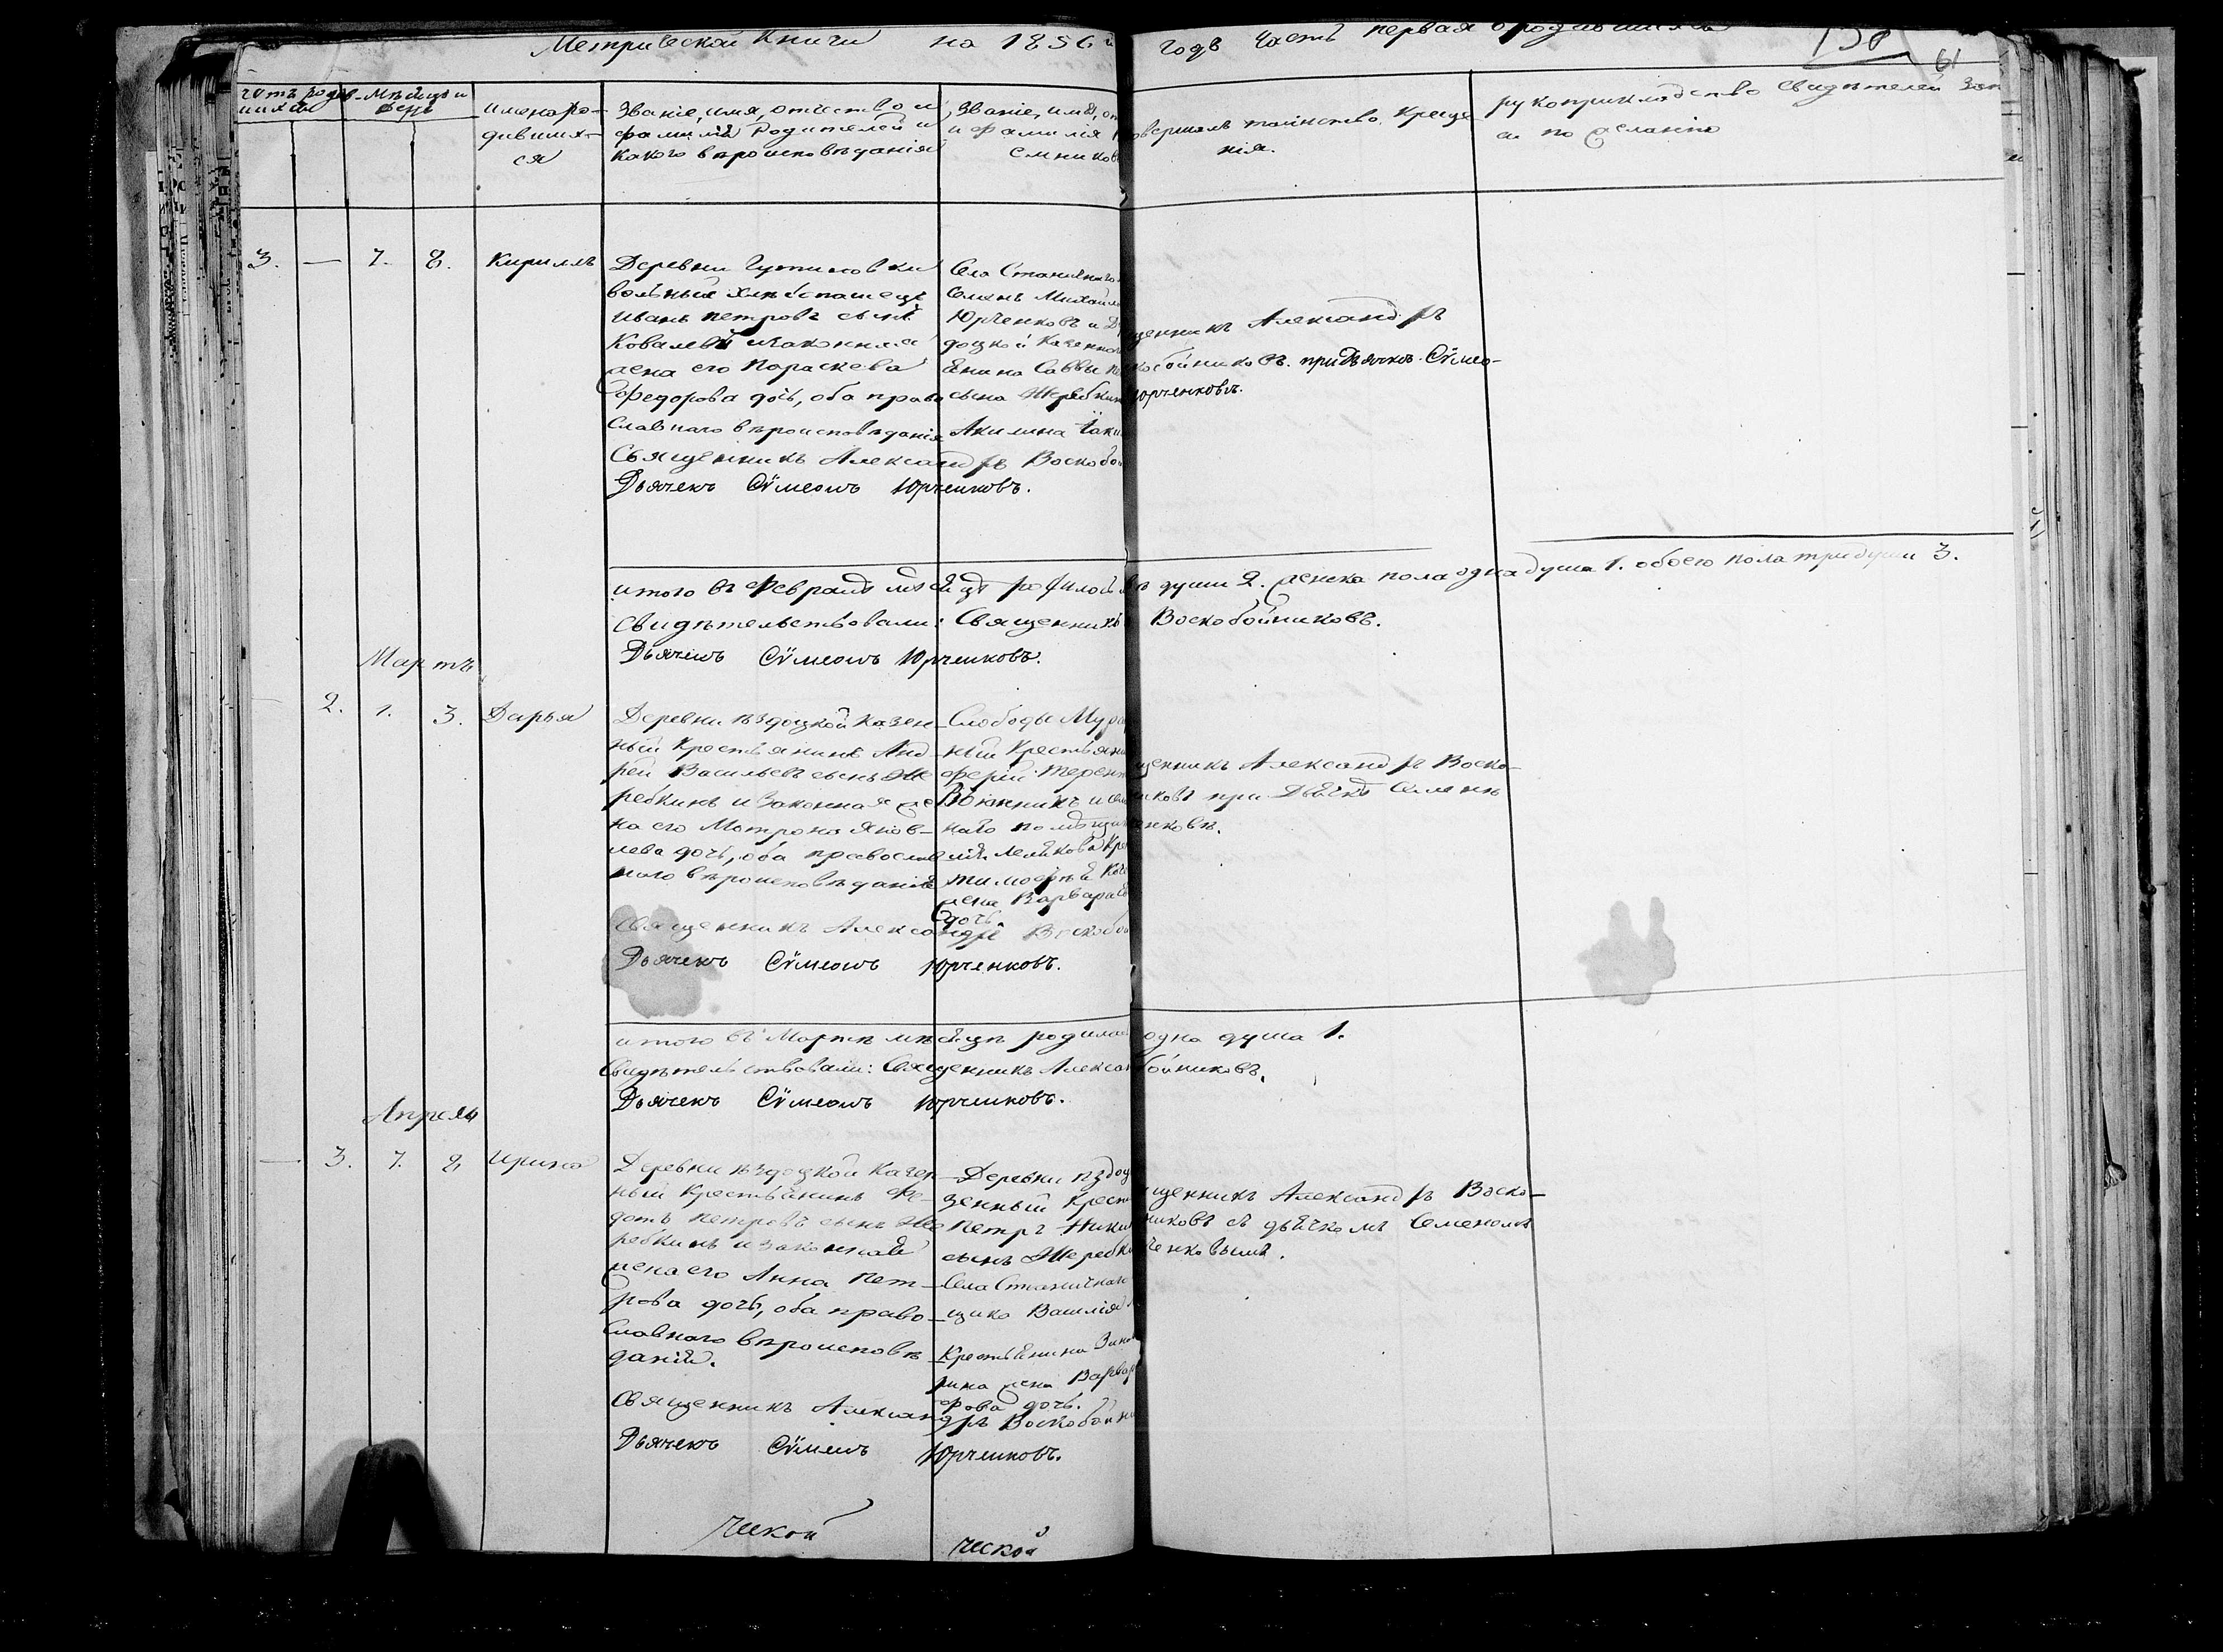 Метрической Книги на 1856й
годъ Часть первая о родившихся
61
Мѣсяцъ и
день
имена ро-
дивших-
ся
Званіе, имя, отчество и
фамилія Родителей и
какого вѣроисповѣданія
Званіе, имя, от
и фамилія
емников
овершалъ таинство Креще
нія.
рукоприкладство свидѣтелей Зап
си по желанію
3. — 7. 8. Кириллъ
Деревни
вольный хлѣбопашецъ
Иванъ Петровъ сынъ
Ковалевъ и законная
жена его Параскева
Федорова дочь, оба право
славнаго вѣроисповѣданія
Священникъ Александръ Воскобой
Дьячекъ Сѵмеонъ Юрченковъ.
Села
Семенъ Михайл
Юрченковъ и Д
доцкой Казеннаго
янина Саввы
сына Жеребкин
Акилина Iаки
щенникъ Александръ
кобойниковъ при Дьячкѣ Сѵмео-
Юрченковѣ.
итого въ Февралѣ мѣсяцѣ родилось
ъ души 2. женска пола одна душа 1. обоего пола три души 3.
Свидѣтельствовали: Священникъ
Воскобойниковъ.
Дьячекъ Сѵмеонъ Юрченковъ.
Мартъ
— 2. 1. 3. Дарья
Деревни ѣздоцкой Казен-
ный Крестьянинъ Анд-
рей Васильевъ сынъ Же
ребкинъ и законная же
на его Мотрона Яков-
лева дочь, оба правосла
наго вѣроисповѣданія
Священникъ Александръ Воскобой
Дьячекъ Сѵмеонъ Юрченковъ.
Слободы Мур
ный Крестьяни
ферій Терент
Вьюнникъ и
наго помѣщи
Кре
Тимофѣя
жена Варвара
дочь.
щенникъ Александръ Воско-
никовъ при Дьячкѣ Семенѣ
нковѣ.
итого въ Мартѣ мѣсяцѣ родилась
одна душа 1.
Свидѣтельствовали: Священникъ Алексан
бойниковъ.
Дьячекъ Сѵмеонъ Юрченковъ.
Апрель
— 3. 7. 8. Ирина
Деревни ѣздоцкой Казен-
ный Крестьянинъ Фе-
дотъ Петровъ сынъ Же
ребкинъ и законная
жена его Анна Пет-
рова дочь, оба право-
славнаго вѣроисповѣ
данія.
Священникъ Александръ Воскобойни
Дьячекъ Сѵмеонъ Юрченковъ.
Деревни ѣздоц
зенный Крест
Петръ Ники
сынъ Жеребк
Села
щика Василія
Крестьянина Зинов
рина жена Варвар
фова дочь.
щенникъ Александръ Воско-
никовъ съ дьячкомъ Семеномъ
ченковымъ.
ческой
ческой